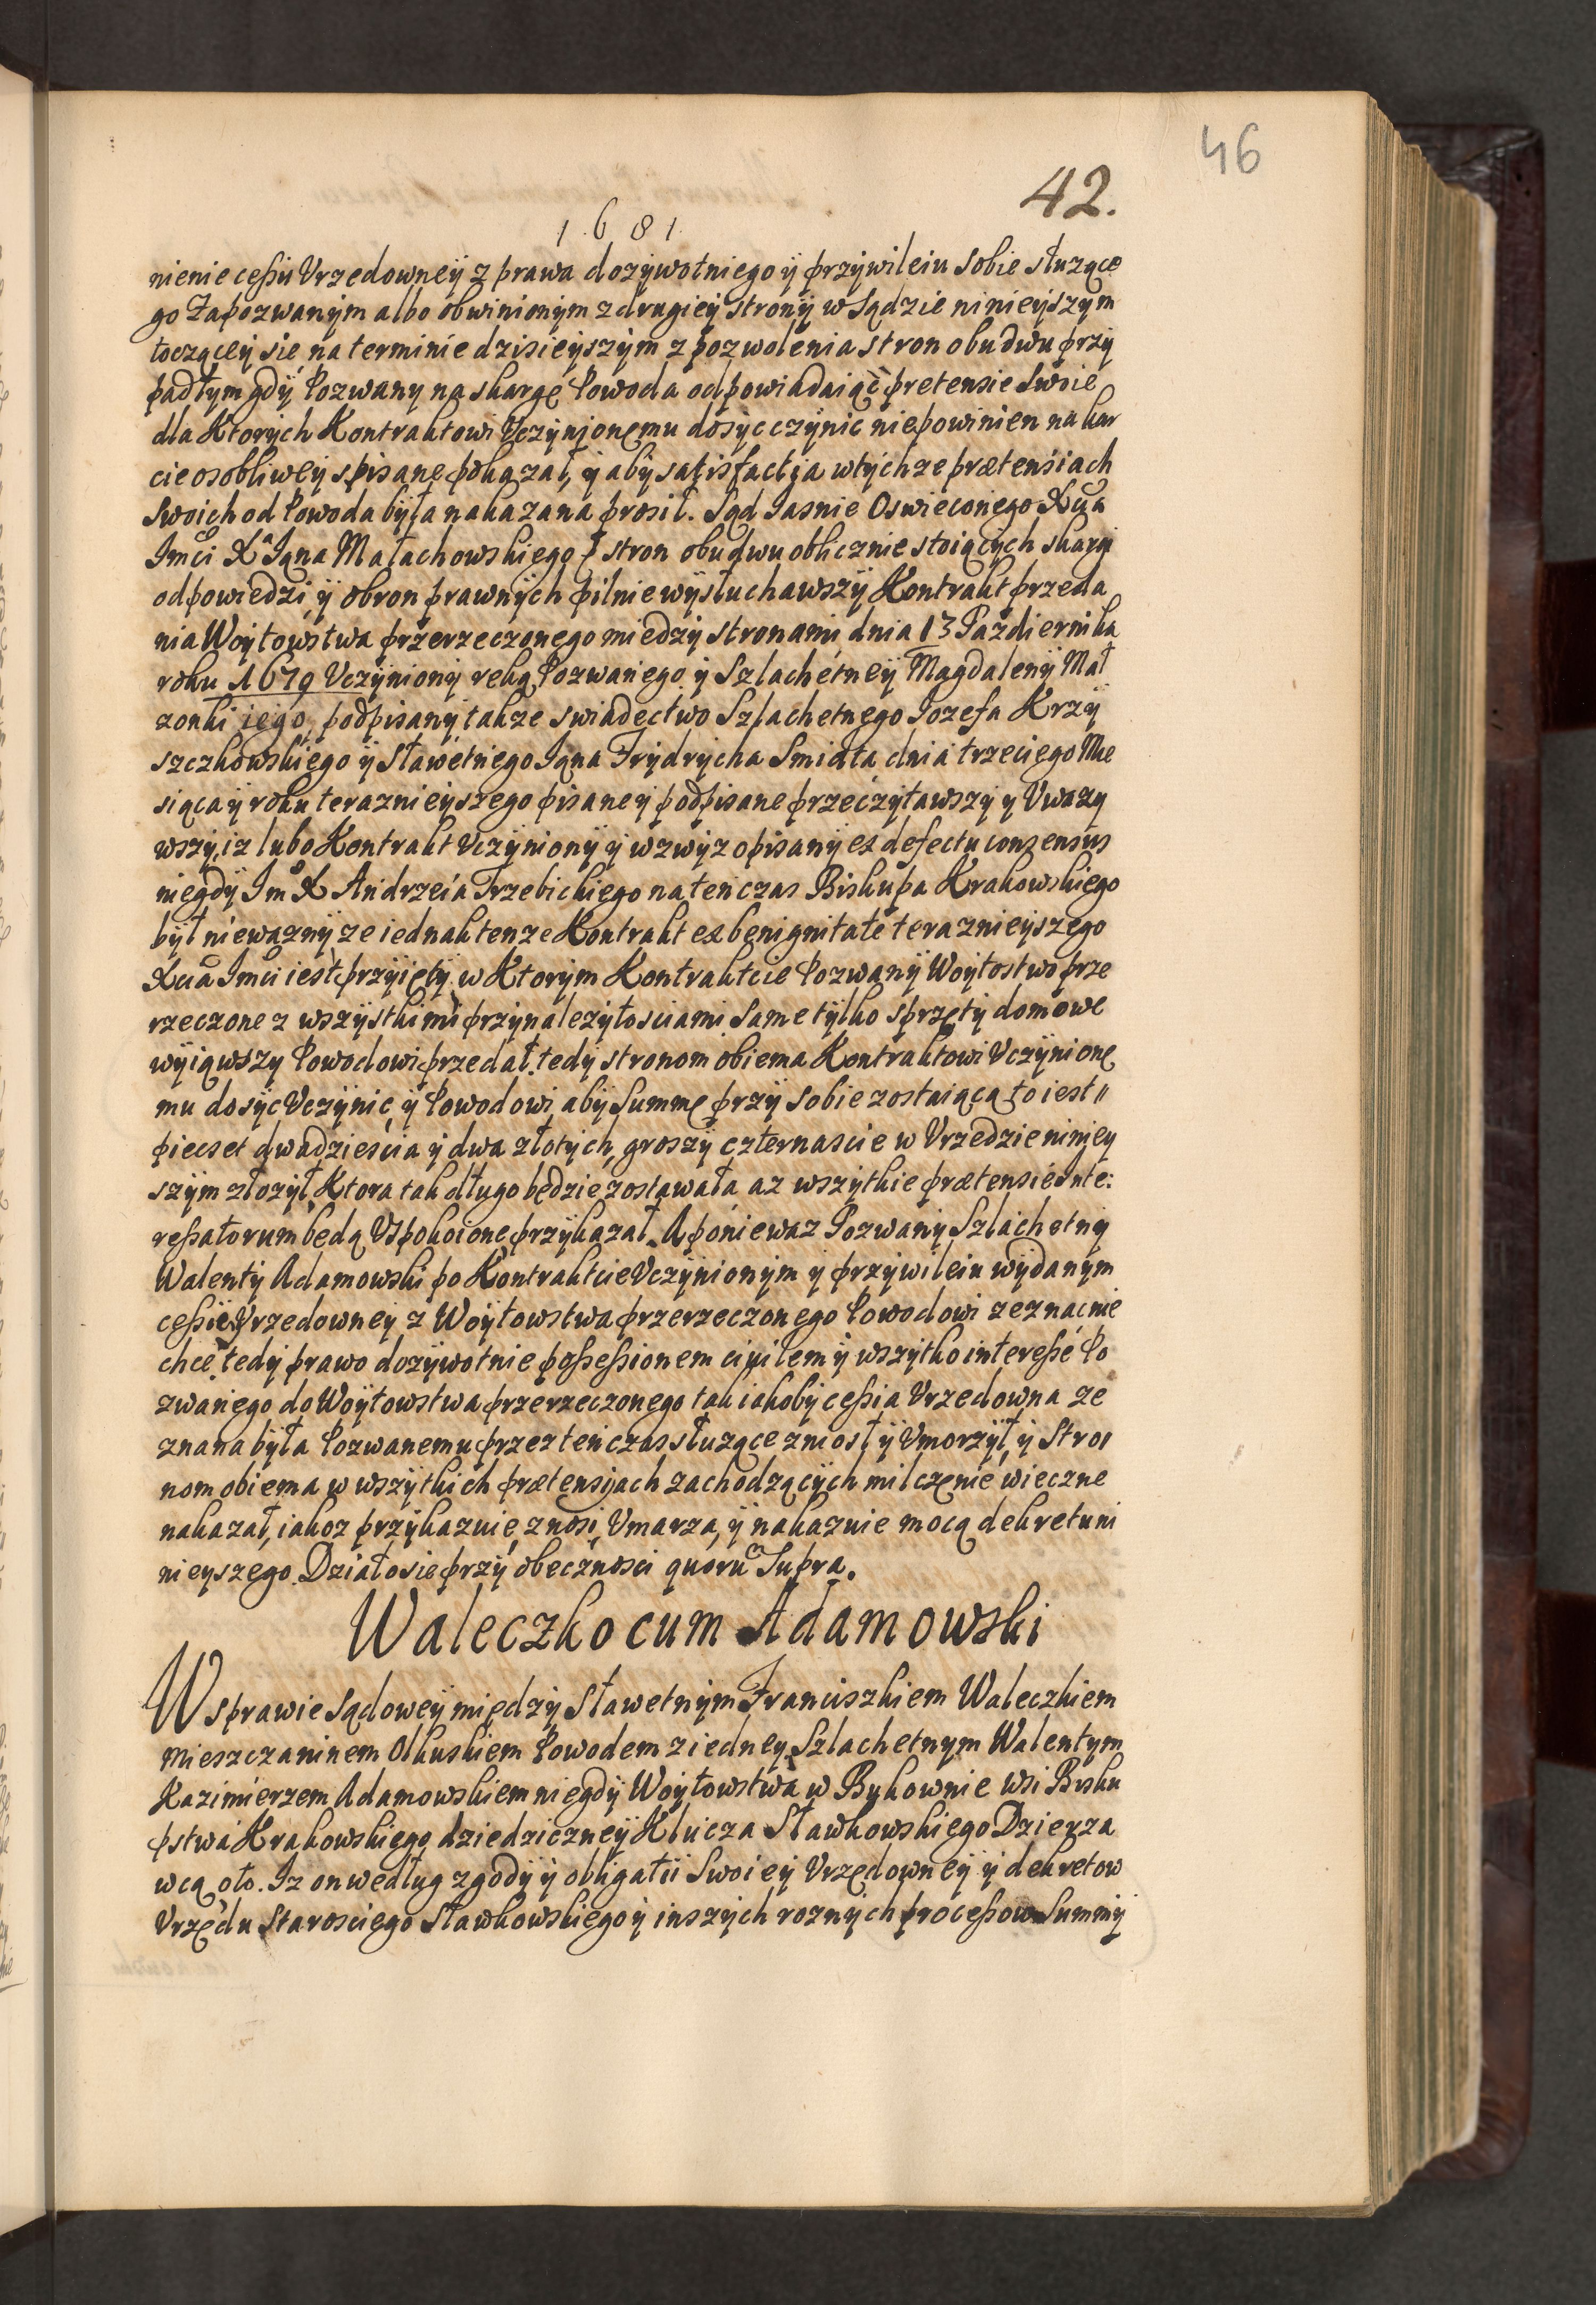 46
42.
1681
nienie cessii Vrzedowneÿ z prawa dozÿwotniego ÿ przÿwileiu sobie słuzące
go Zapozwanÿm albo obwinionÿm z drugieÿ stronÿ w Sądzie ninieÿszÿm
toczącey sie na terminie dzisieÿszÿm z pozwolenia stron obudwu przÿ
padłym gdÿ Pozwany na skargę Powoda odpowiadaiąc pretensie swoie
dla Ktorÿch Kontraktowi Vczÿnionemu dosÿc czÿnic niepowinien na kar
cie osobliweÿ spisane pokazał, ÿ abÿ satisfactia wtÿchze prætensiach
swoich od Powoda bÿła nakazana prosił. Sąd Iasnie Oswieconego Xcia
Imci Xa Iana Małachowskiego stron obudwu oblicznie stoiącÿch skargi
odpowiedzi ÿ obron prawnÿch pilnie wÿsłuchawszÿ Kontrakt przeda
nia Woÿtowstwa przerzeczonego miedzÿ stronami dnia 13 Pazdziernika
roku 1679 Vczÿnionÿ ręką Pozwanego ÿ Szlachetneÿ Magdalenÿ Mał
zonki iego, podpisanÿ takze swiadectwo Szlachetnego Iozefa Krzÿ
szczkowskiego ÿ sławetnego Iana Frÿdrÿcha Smidta dnia trzeciego Mie
siąca ÿ roku teraznieÿszego pisane ÿ podpisane przeczÿtawszÿ ÿ Vwazy
wszÿ, iz lubo Kontrakt Vczÿnionÿ ÿ wzwÿz opisanÿ ex defectu consensus
niegdÿ Imo X Andrzeia Trzebickiego na tenczas Biskupa Krakowskiego
bÿł niewaznÿ ze iednak tenze Kontrakt ex benignitate teraznieÿszego
Xcia Imci iest przÿiętÿ. w Ktorÿm Kontraktcie Pozwanÿ Woÿtostwo prze
rzeczone z wszÿstkimi przÿnalezÿtosciami same tÿlko sprzętÿ domowe
wÿiąwszy Powodowi przedał. tedÿ stronom obiema Kontraktowi Vczÿnione
mu dosÿc Vczÿnic ÿ Powodowi, abÿ Summę przÿ sobie zostaiącą to iest //
piecset dwadziescia ÿ dwa złotÿch, groszÿ czternascie w Vrzedzie niniey
szÿm złozÿł Ktora tak długo będzie zostawała az wszÿtkie prætensie Inte:
ressatorum bedą Vspokoione przÿkazał. A poniewaz Pozwanÿ Szlachetnÿ
Walentÿ Adamowski po Kontraktcie Vczÿnionÿm ÿ przÿwileiu wÿdanÿm
cessiÿ Vrzedowneÿ z Woÿtowstwa przerzeczonego Powodowi zeznac nie
chce, tedÿ prawo dozÿwotnie possessionem ciuilem ÿ wszÿtko interesse Po
zwanego do Woÿtowstwa przerzeczonego tak iakobÿ cessia Vrzedowna ze
znana bÿła Pozwanemu przez tenczas słuzące zniosł ÿ Vmorzÿł, ÿ Stro
nom obiema w wszÿtkich prætensÿach zachodzącÿch milczenie wieczne
nakazał, iakoz przÿkazuie, znosi, Vmarza, ÿ nakazuie mocą dekretu ni
nieyszego. Działo sie przÿ obecznosci quorũ Supra.
Waleczko cum Adamowski
W sprawie sądoweÿ między Sławetnÿm Franciszkiem Waleczkiem
Mieszczaninem Olkuskiem Powodem z iedney, Szlachetnym Walentym
Kazimierzem Adamowskiem niegdÿ Woÿtowstwa w Bykownie wsi Bisku
pstwa Krakowskiego dziedziczneÿ Klucza Sławkowskiego Dzierza
wcą, oto. Iz on według zgodÿ ÿ obligatii Swoieÿ Vrzędowneÿ ÿ dekretow
Vrzędu Starosciego Sławkowskiego ÿ inszÿch roznÿch processow Summÿ